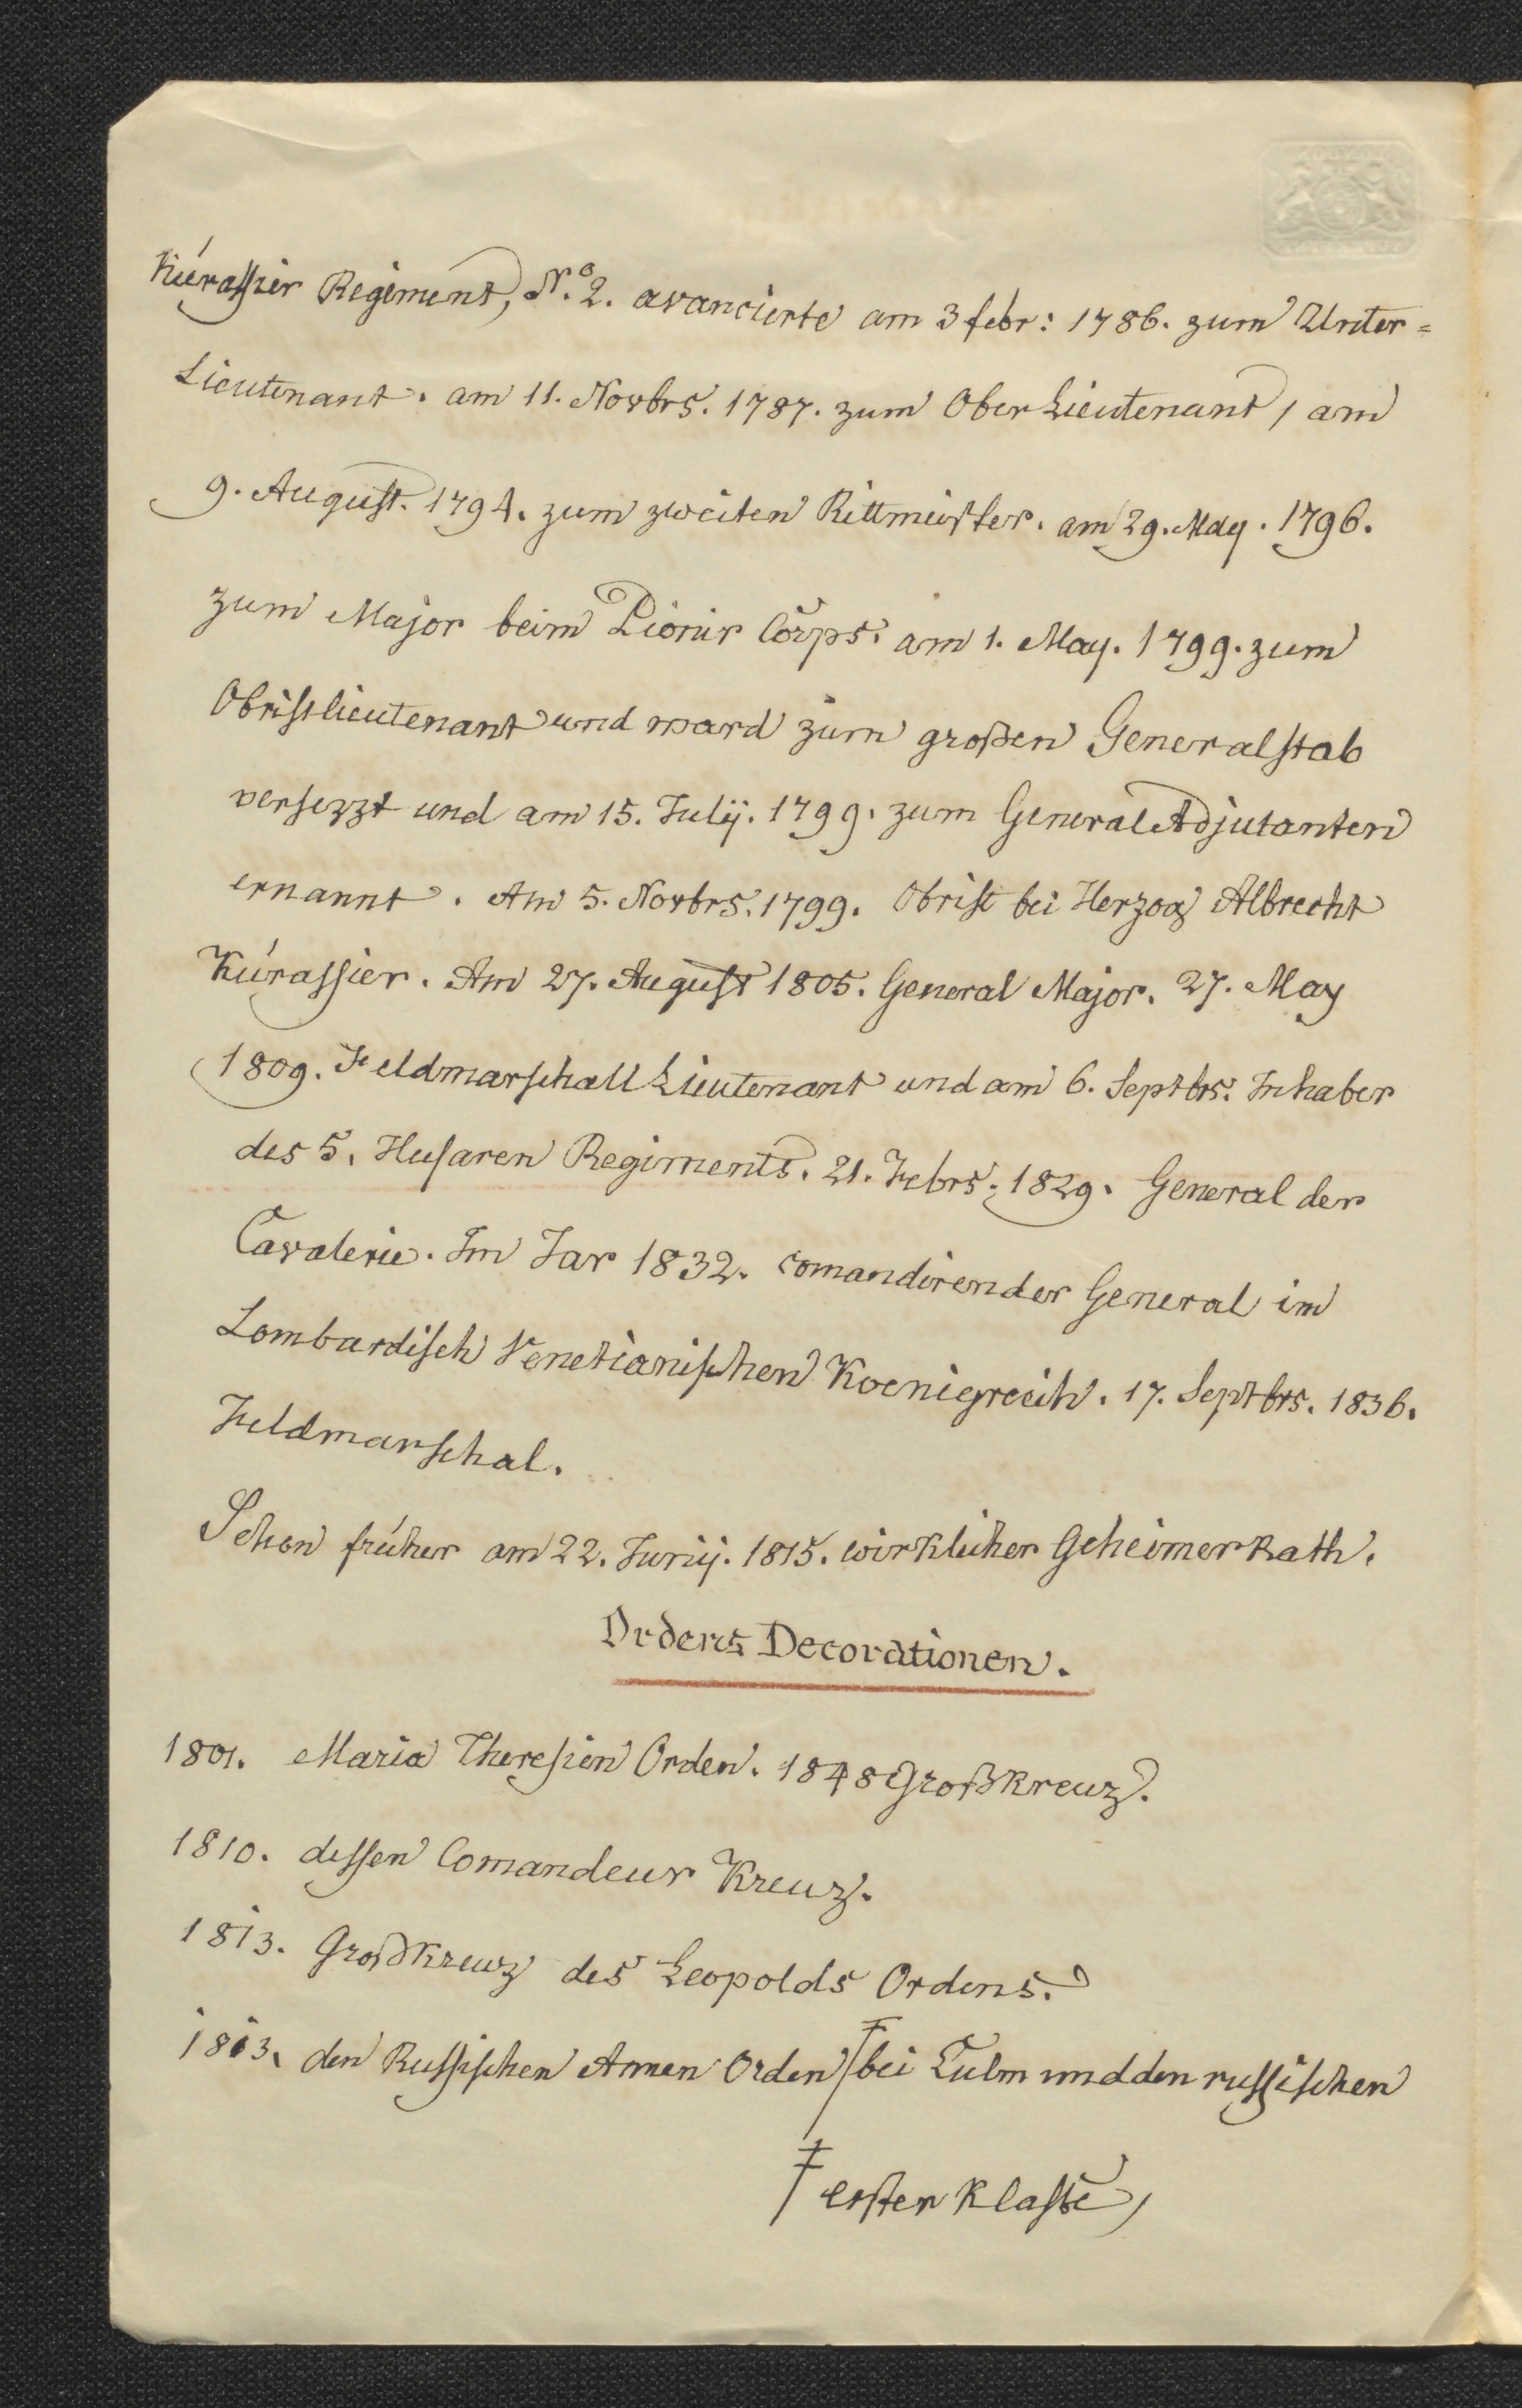 Kürassier Regiment, No. 2. avancierte am 3 febr: 1786. zum Unter=
Lieutenant. am 11. Novbrs. 1787. zum Ober Lieutenant, am
9. August. 1794. zum zweiten Rittmeister. am 29. May. 1796.
zum Major beim Pionir Corps. am 1. May. 1799. zum
Obristlieutenant und ward zum großen Generalstab
versezzt und am 15. Julÿ. 1799. zum General Adjutanten
ernannt. Am 5. Novbrs. 1799. Obrist bei Herzog Albrecht
Kürassier. Am 27. August 1805. General Major. 27. May
1809. Feldmarschall Lieutenant und am 6. Septbrs. Inhaber
des 5. Husaren Regiments. 21. Febrs. 1829. General der
Cavalerie. Im Jar 1832. comandirender General im
Lombardisch Venetianischen Koenigreich. 17. Septbrs. 1836.
Feldmarschal.
Schon früher am 22. Junÿ. 1815. wirklicher Geheimer Rath.
Ordens Decorationen.
1801. Maria Theresien Orden. 1848 Großkreuz.
1810. dessen Comandeur Kreuz.
1813. Großkreuz des Leopolds Ordens.
1813. den Russischen Annen Orden ‡ bei Culm und den russischen
‡ erster Klasse,